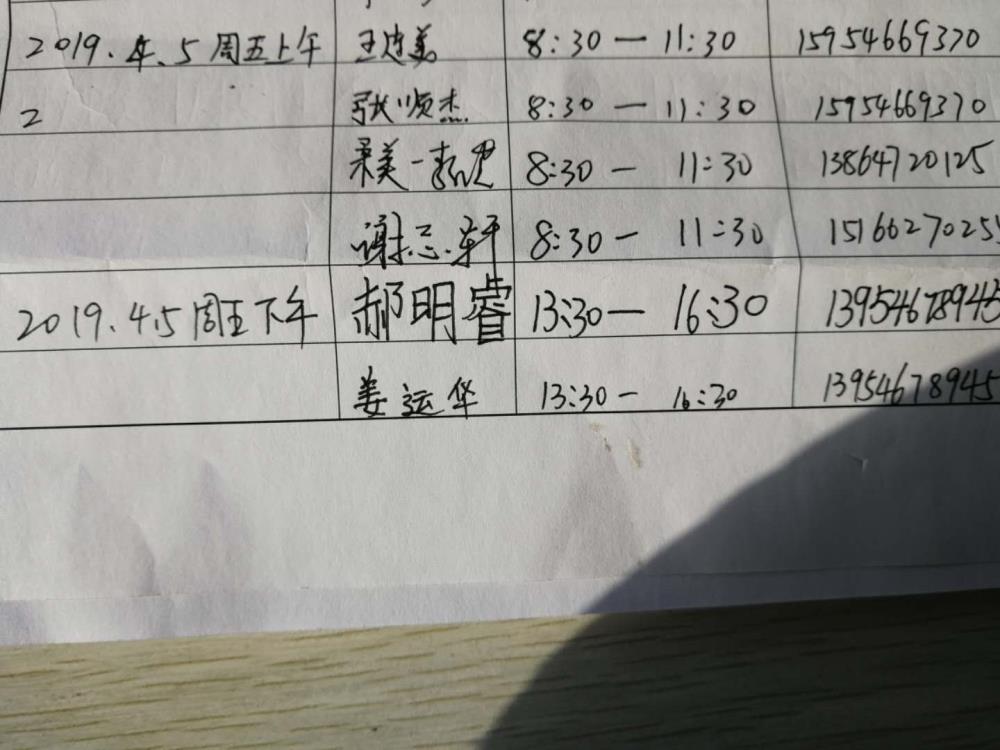 2019.4.5周五上午 王建美 8:30 — 11:30 15954669370
2 张顺杰 8:30 — 11:30 15954669370
8:30 — 11:30 13864720125
谢志轩 8:30 — 11:30 1516627025
2019.4.5周五下午 郝明睿 13:30 — 16:30 13954678945
姜运华 13:30 — 16:30 13954678945